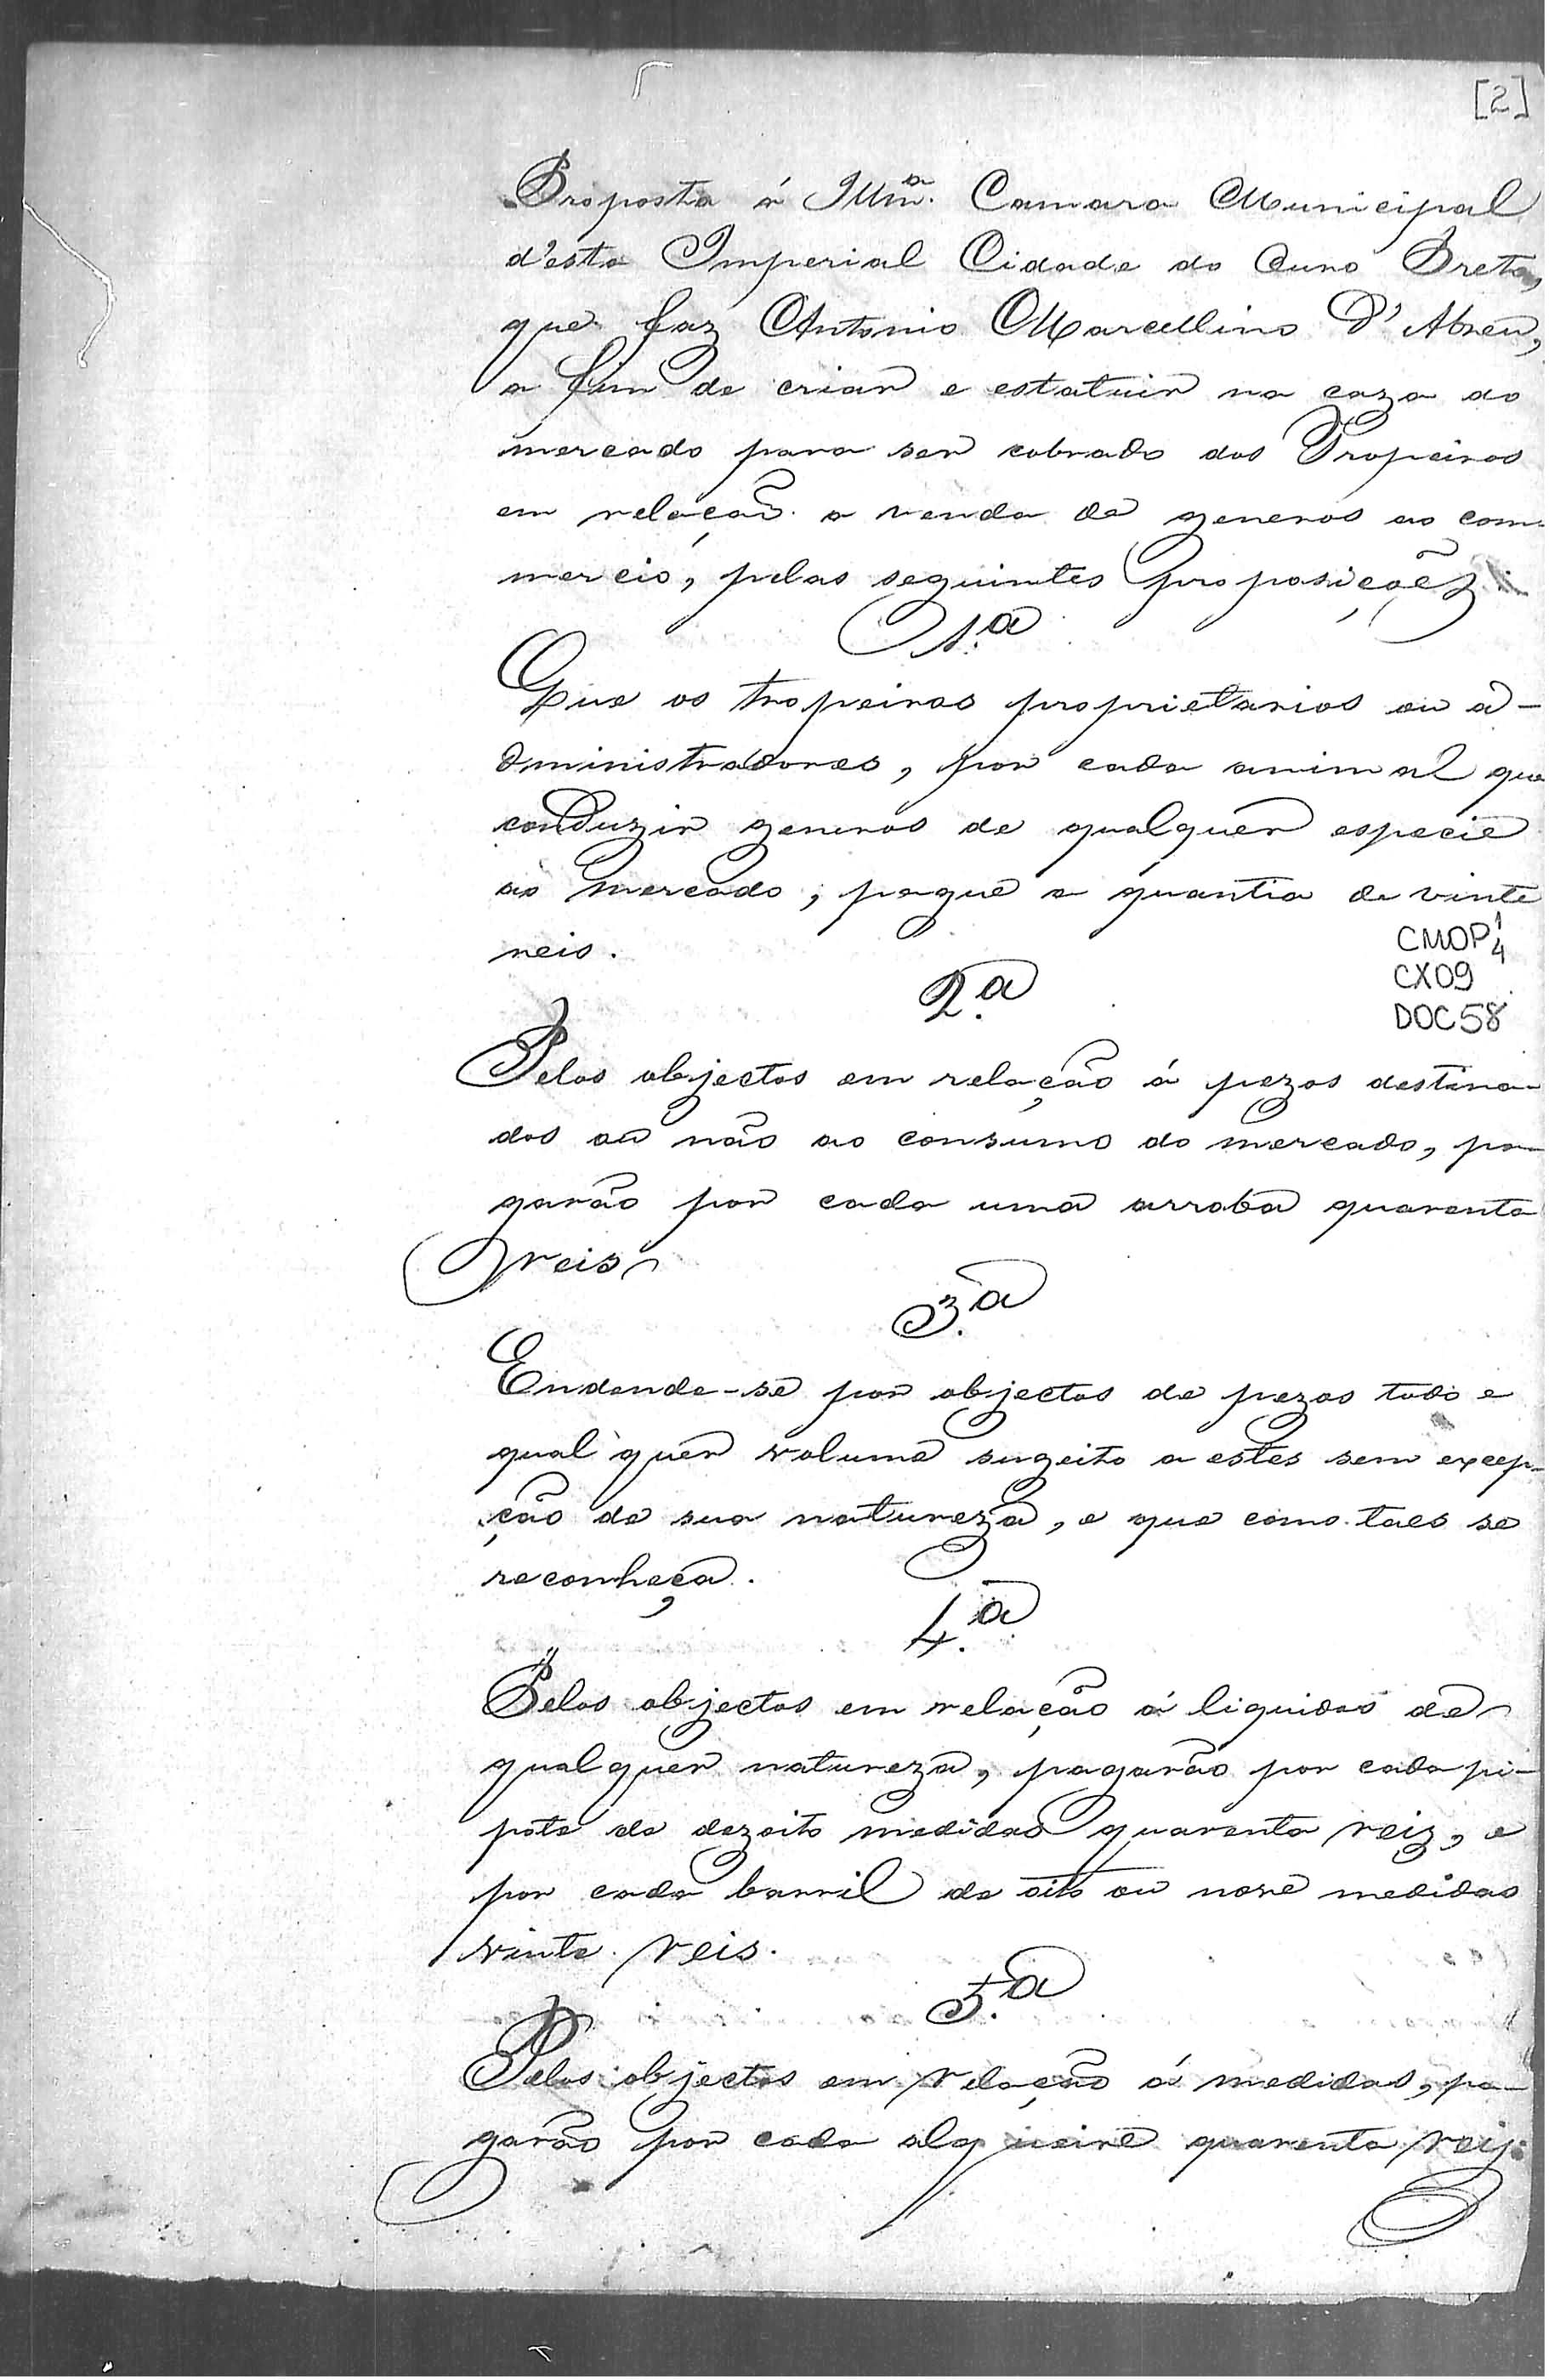 [2]
Proposta á Illmª. Camara Municipal
d'esta Imperial Cidade do Ouro Preto,
que faz Antonio Marcellino D'Abreu,
a fim de criar e estatuir na caza do
mercado para ser cobrado dos Tropeiros
em relação a venda de generos ao com-
mercio, pelas seguintes proposições
1.ª
Que os tropeiros proprietarios ou a-
dministradores, por cada animal que
conduzir generos de qualquer especie
ao mercado, pague a quantia de vinte
reis.
CMOP 1/4
CX09
DOC58
2.ª
Pelos objectos em relação á pezos destina-
dos ou não ao consumo do mercado, pa-
garão por cada uma arroba quarenta
reis
3.ª
Endende-se por objectos de pezos todo e
qualquer volume sugeito a estes sem excep-
ção de sua natureza, e que como taes se
reconheça.
4.ª
Pelos objectos em relação á liquidos de
qualquer natureza, pagarão por cada pi-
pote de dezoito medidas quarenta reiz, e
por cada barril de oito ou nove medidas
vinte reis.
5.ª
Pelos objectos em relação á medidas, pa-
garão por cada alqueire quarenta reis.